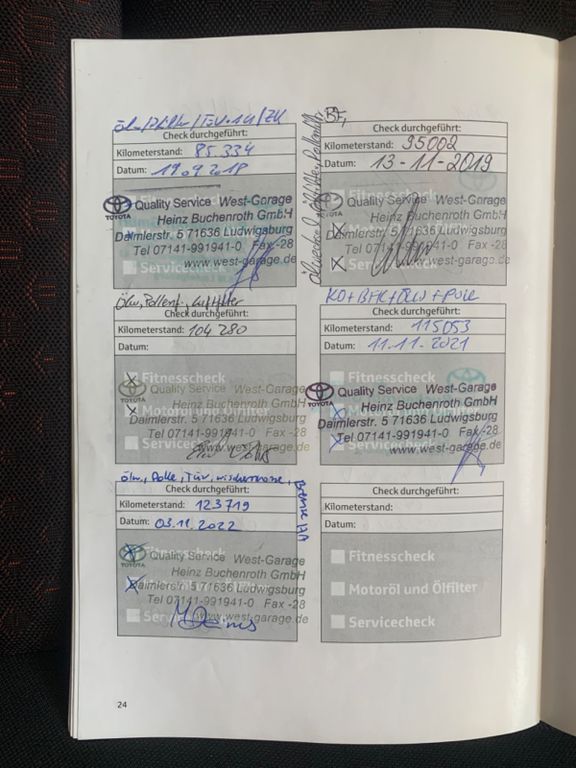 Check durchgeführt:
Kilometerstand: 85.334
Datum: 19.09.2018
TOYOTA
Quality Service West-Garage
Heinz Buchenroth GmbH
Daimlerstr. 5 71636 Ludwigsburg
Tel 07141-991941-0 Fax -28
www.west-garage.de
Servicecheck
BF,
Check durchgeführt:
Kilometerstand: 95002
Datum: 13-11-2019
Fitnesscheck
TOYOTA
Quality Service West-Garage
Heinz Buchenroth GmbH
Daimlerstr. 5 71636 Ludwigsburg
Tel 07141-991941-0 Fax -28
www.west-garage.de
Servicecheck
Ölw, Pollenf., Luftfilter
Check durchgeführt:
Kilometerstand: 104280
Datum:
Fitnesscheck
TOYOTA
Quality Service West-Garage
Motoröl und Ölfilter
Heinz Buchenroth GmbH
Daimlerstr. 5 71636 Ludwigsburg
Tel 07141-991941-0 Fax -28
www.west-garage.de
Servicecheck
Check durchgeführt:
Kilometerstand: 115053
Datum: 11.11.2021
TOYOTA
Quality Service West-Garage
Heinz Buchenroth GmbH
Daimlerstr. 5 71636 Ludwigsburg
Tel 07141-991941-0 Fax -28
www.west-garage.de
Servicecheck
Ölw, Polle, Tüv, Bremse HA
Check durchgeführt:
Kilometerstand: 123719
Datum: 03.11.2022
Quality Service West-Garage
TOYOTA
Heinz Buchenroth GmbH
Daimlerstr. 5 71636 Ludwigsburg
Tel 07141-991941-0 Fax -28
www.west-garage.de
Servicecheck
Check durchgeführt:
Kilometerstand:
Datum:
Fitnesscheck
Motoröl und Ölfilter
Servicecheck
24